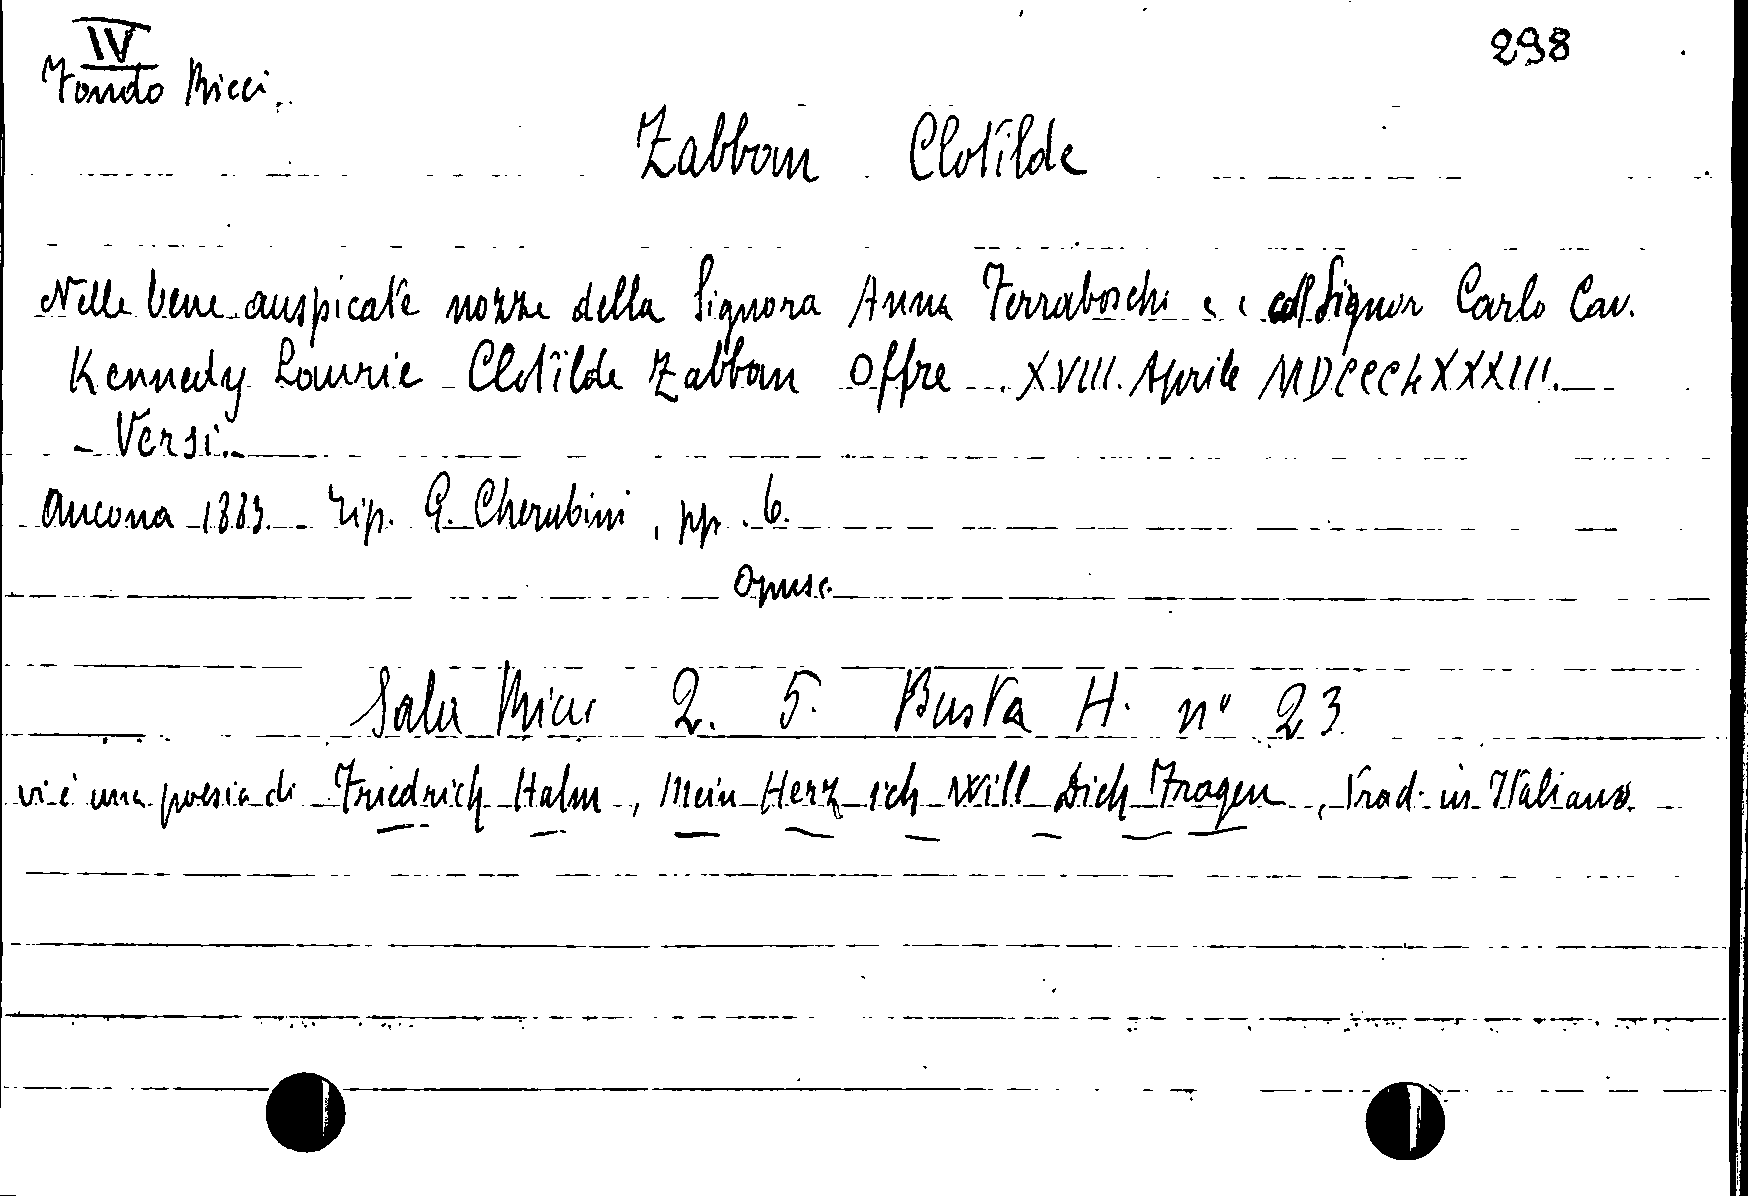 IV
Fondo Ricci.
298
Zabban Clotilde
Nelle bene auspicate nozze della Signora Anna Terraboschi col Signor Carlo Cav.
Kennedy Lawrie Clotilde Zabban Offre XVIII. Aprile MDCCCLXXXIII.
- Versi.-
Ancona 1883. Tip. G. Cherubini, pp. 6.
Opusc.
Sala Ricci 2. 5. Busta H. n° 23
vi è una poesia di Friedrich Halm, Mein Herz ich will Dich Fragen, trad. in Italiano.